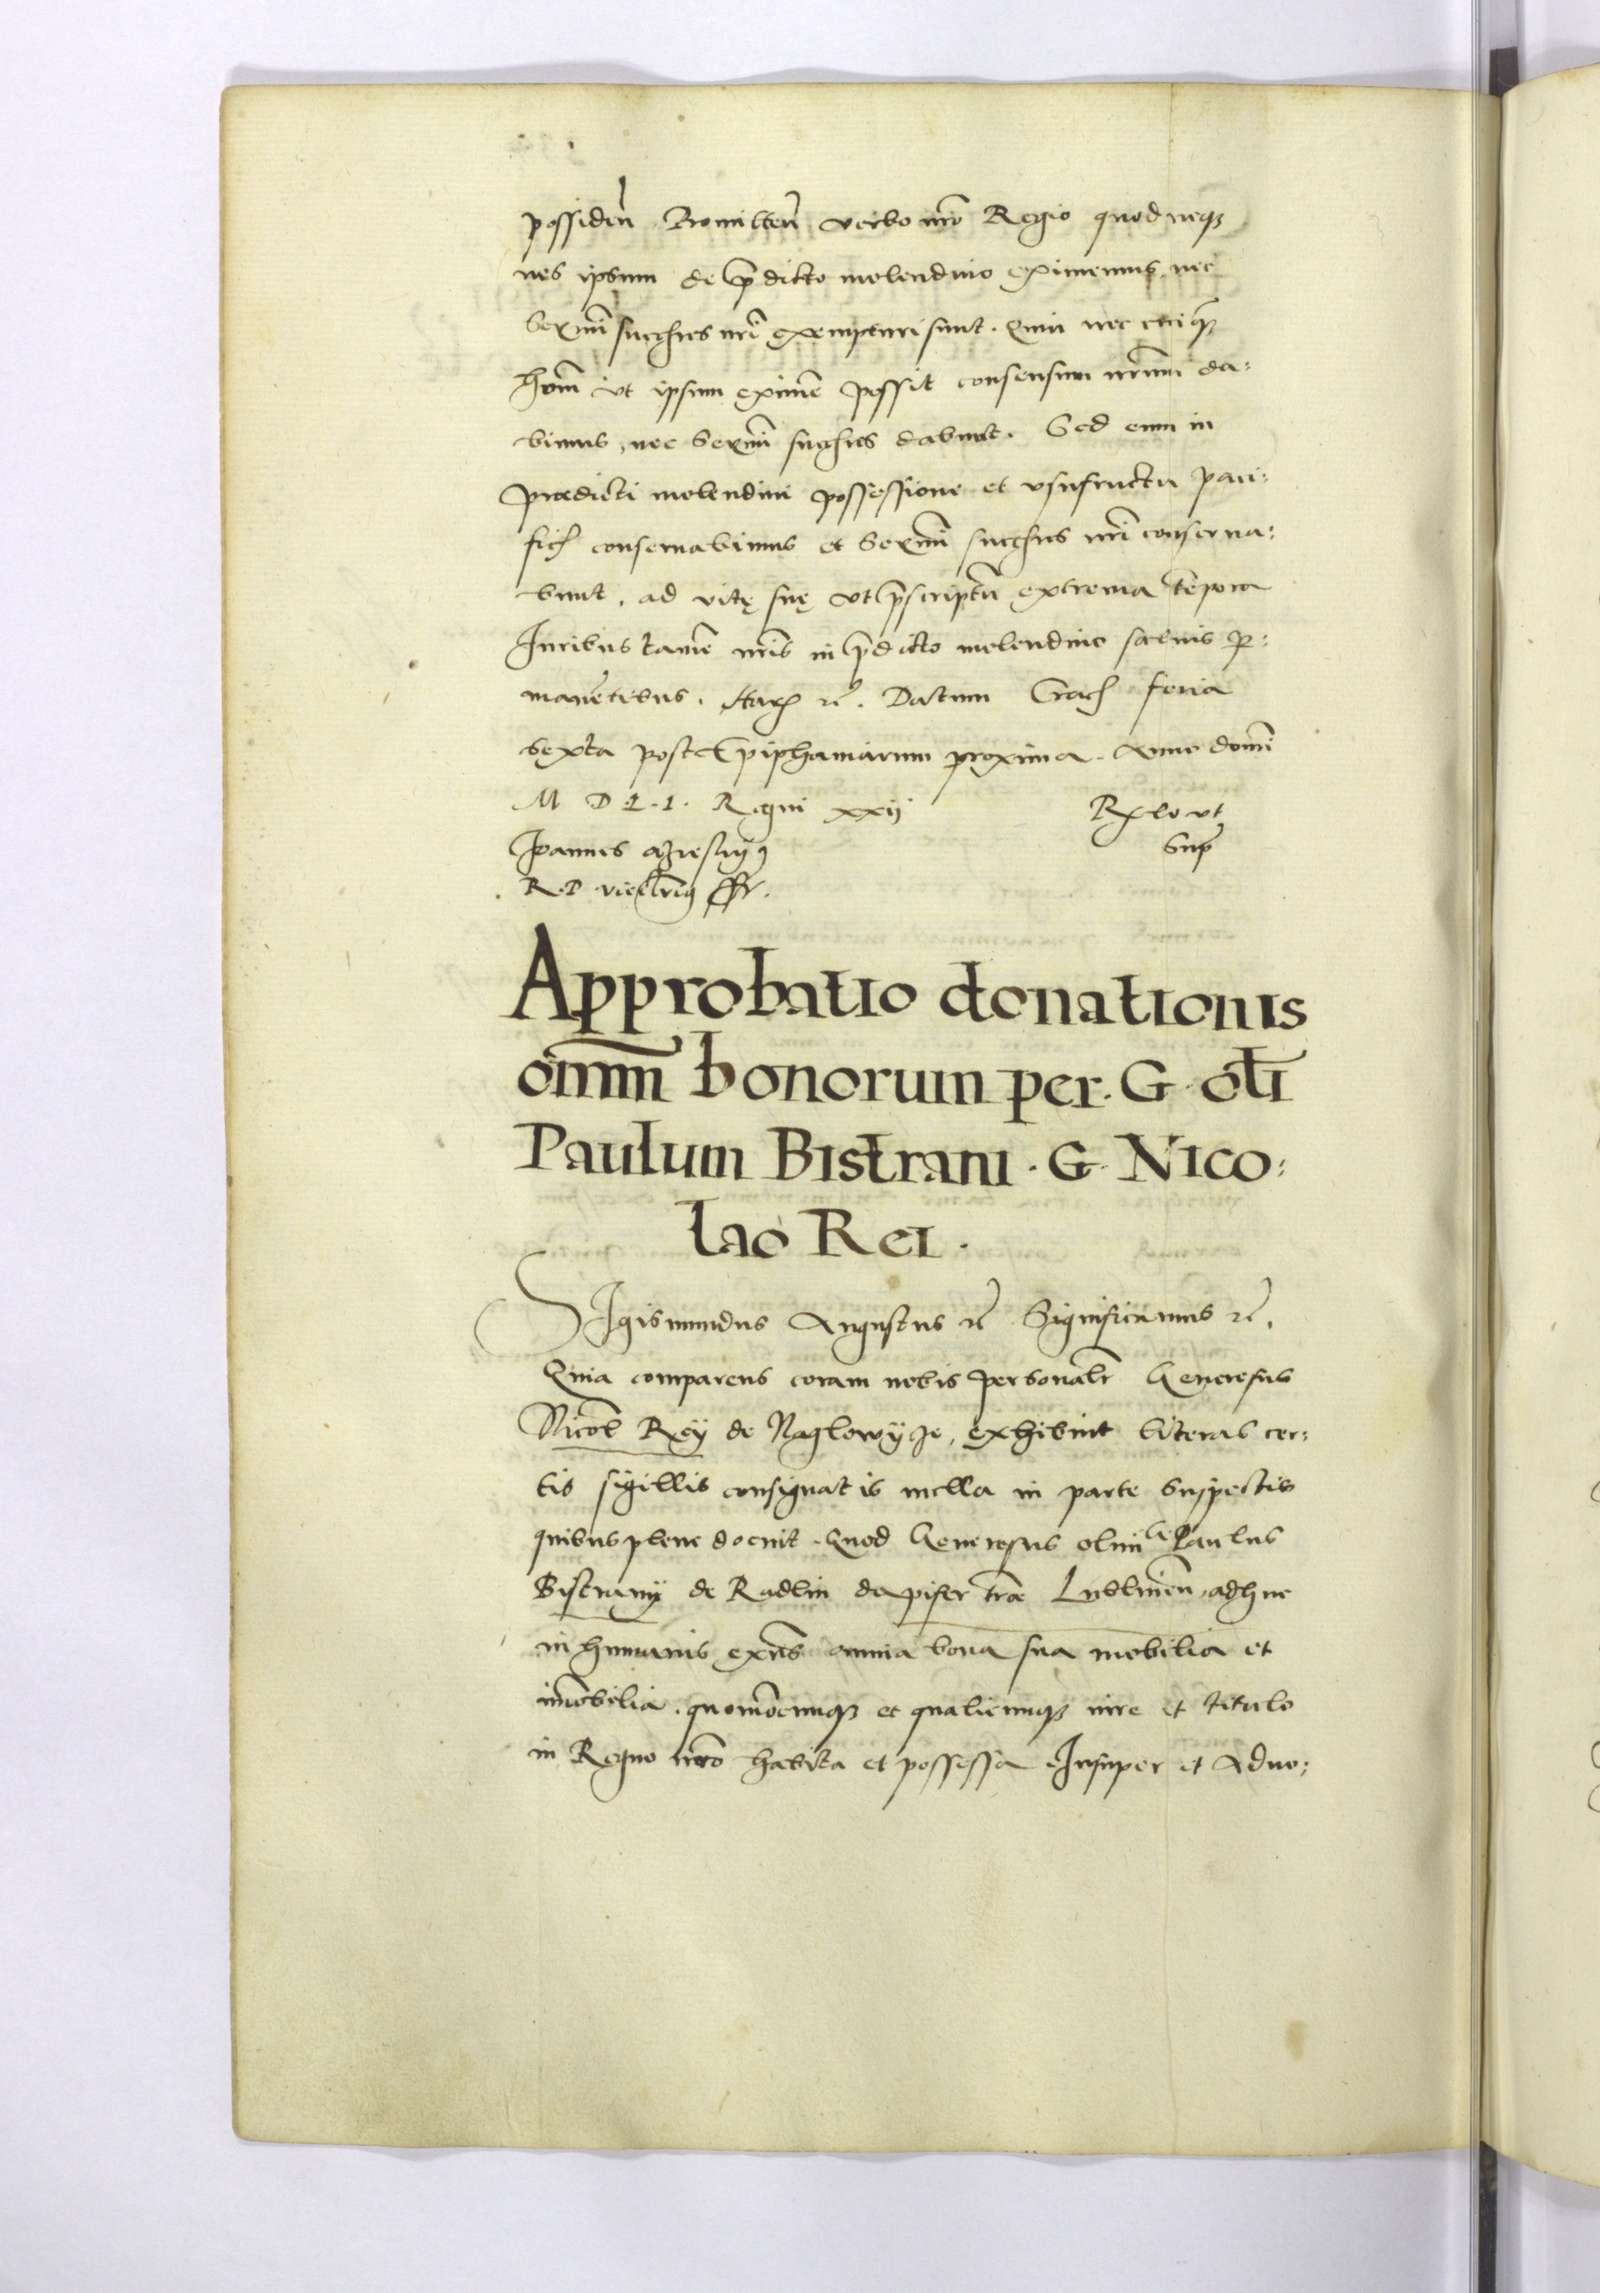 possiden̄ Promitten̄ verbo nr̄o Regio quod neqȝ
nos ipsum de p̄dicto molendino eximemus nec
Sermi succ̄ses nr̄i exempturi sunt. Quin nec cuiqȝ
hom̄ ut ipsum eximē possit consensum nr̄um da-
bimus, nec Sermi succ̄ses dabunt. Sed eum in
prædicti molendini possessione et usufructu paci-
fice conservabimus et Sermi succ̄ses nr̄i conserva-
bunt, ad vitę suę ut p̄scriptū extrema tēpora
Iuribus tamē nr̄is in p̄dicto molendino salvis p̱-
manētibus. Harȝ ꝛc̄. Datum Crac̄ feria
sexta post Epiphaniarum proxima. Anno domi
M D L I. Regni xxij
Rel̄o ut
Sup̄
Joannes
R. P. vicecan̄riꝰ ss̄t.
Approbatio donationis
om̄m̄ bonorum per. G. olī
Paulum Bistrani. G. Nico:
lao Rei.
Sigismundus Augustus ꝛc̄ Significamus ꝛc̄.
Quia comparens coram nobis personalr̄ Generosus
Nicol̄ Rey de Naglowyȝe, exhibuit literas cer:
tis sigillis consignatis nulla in parte suspectis
quibus plene docuit. Quod Generosus olim G. Paulus
Bistrany de Radlin dapifer trae Lublinen̄, adhuc
in humanis exn̄s omnia bona sua mobilia et
imobilia. quomōcunqȝ et qualicunqȝ iure et titulo
in Regno nr̄o habita et possessa Insuper et Advo: